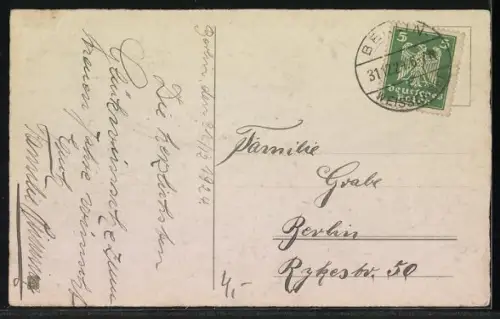 Berlin, den 31/12 1924
Die herzlichsten
Glückwünsche zum
neuen Jahre wünscht
Euch
Familie
Familie
Grabe
Berlin
Rykestr. 50
BERLIN
31.12.24
WEISSENSEE
5 5
Deutsches
Reich